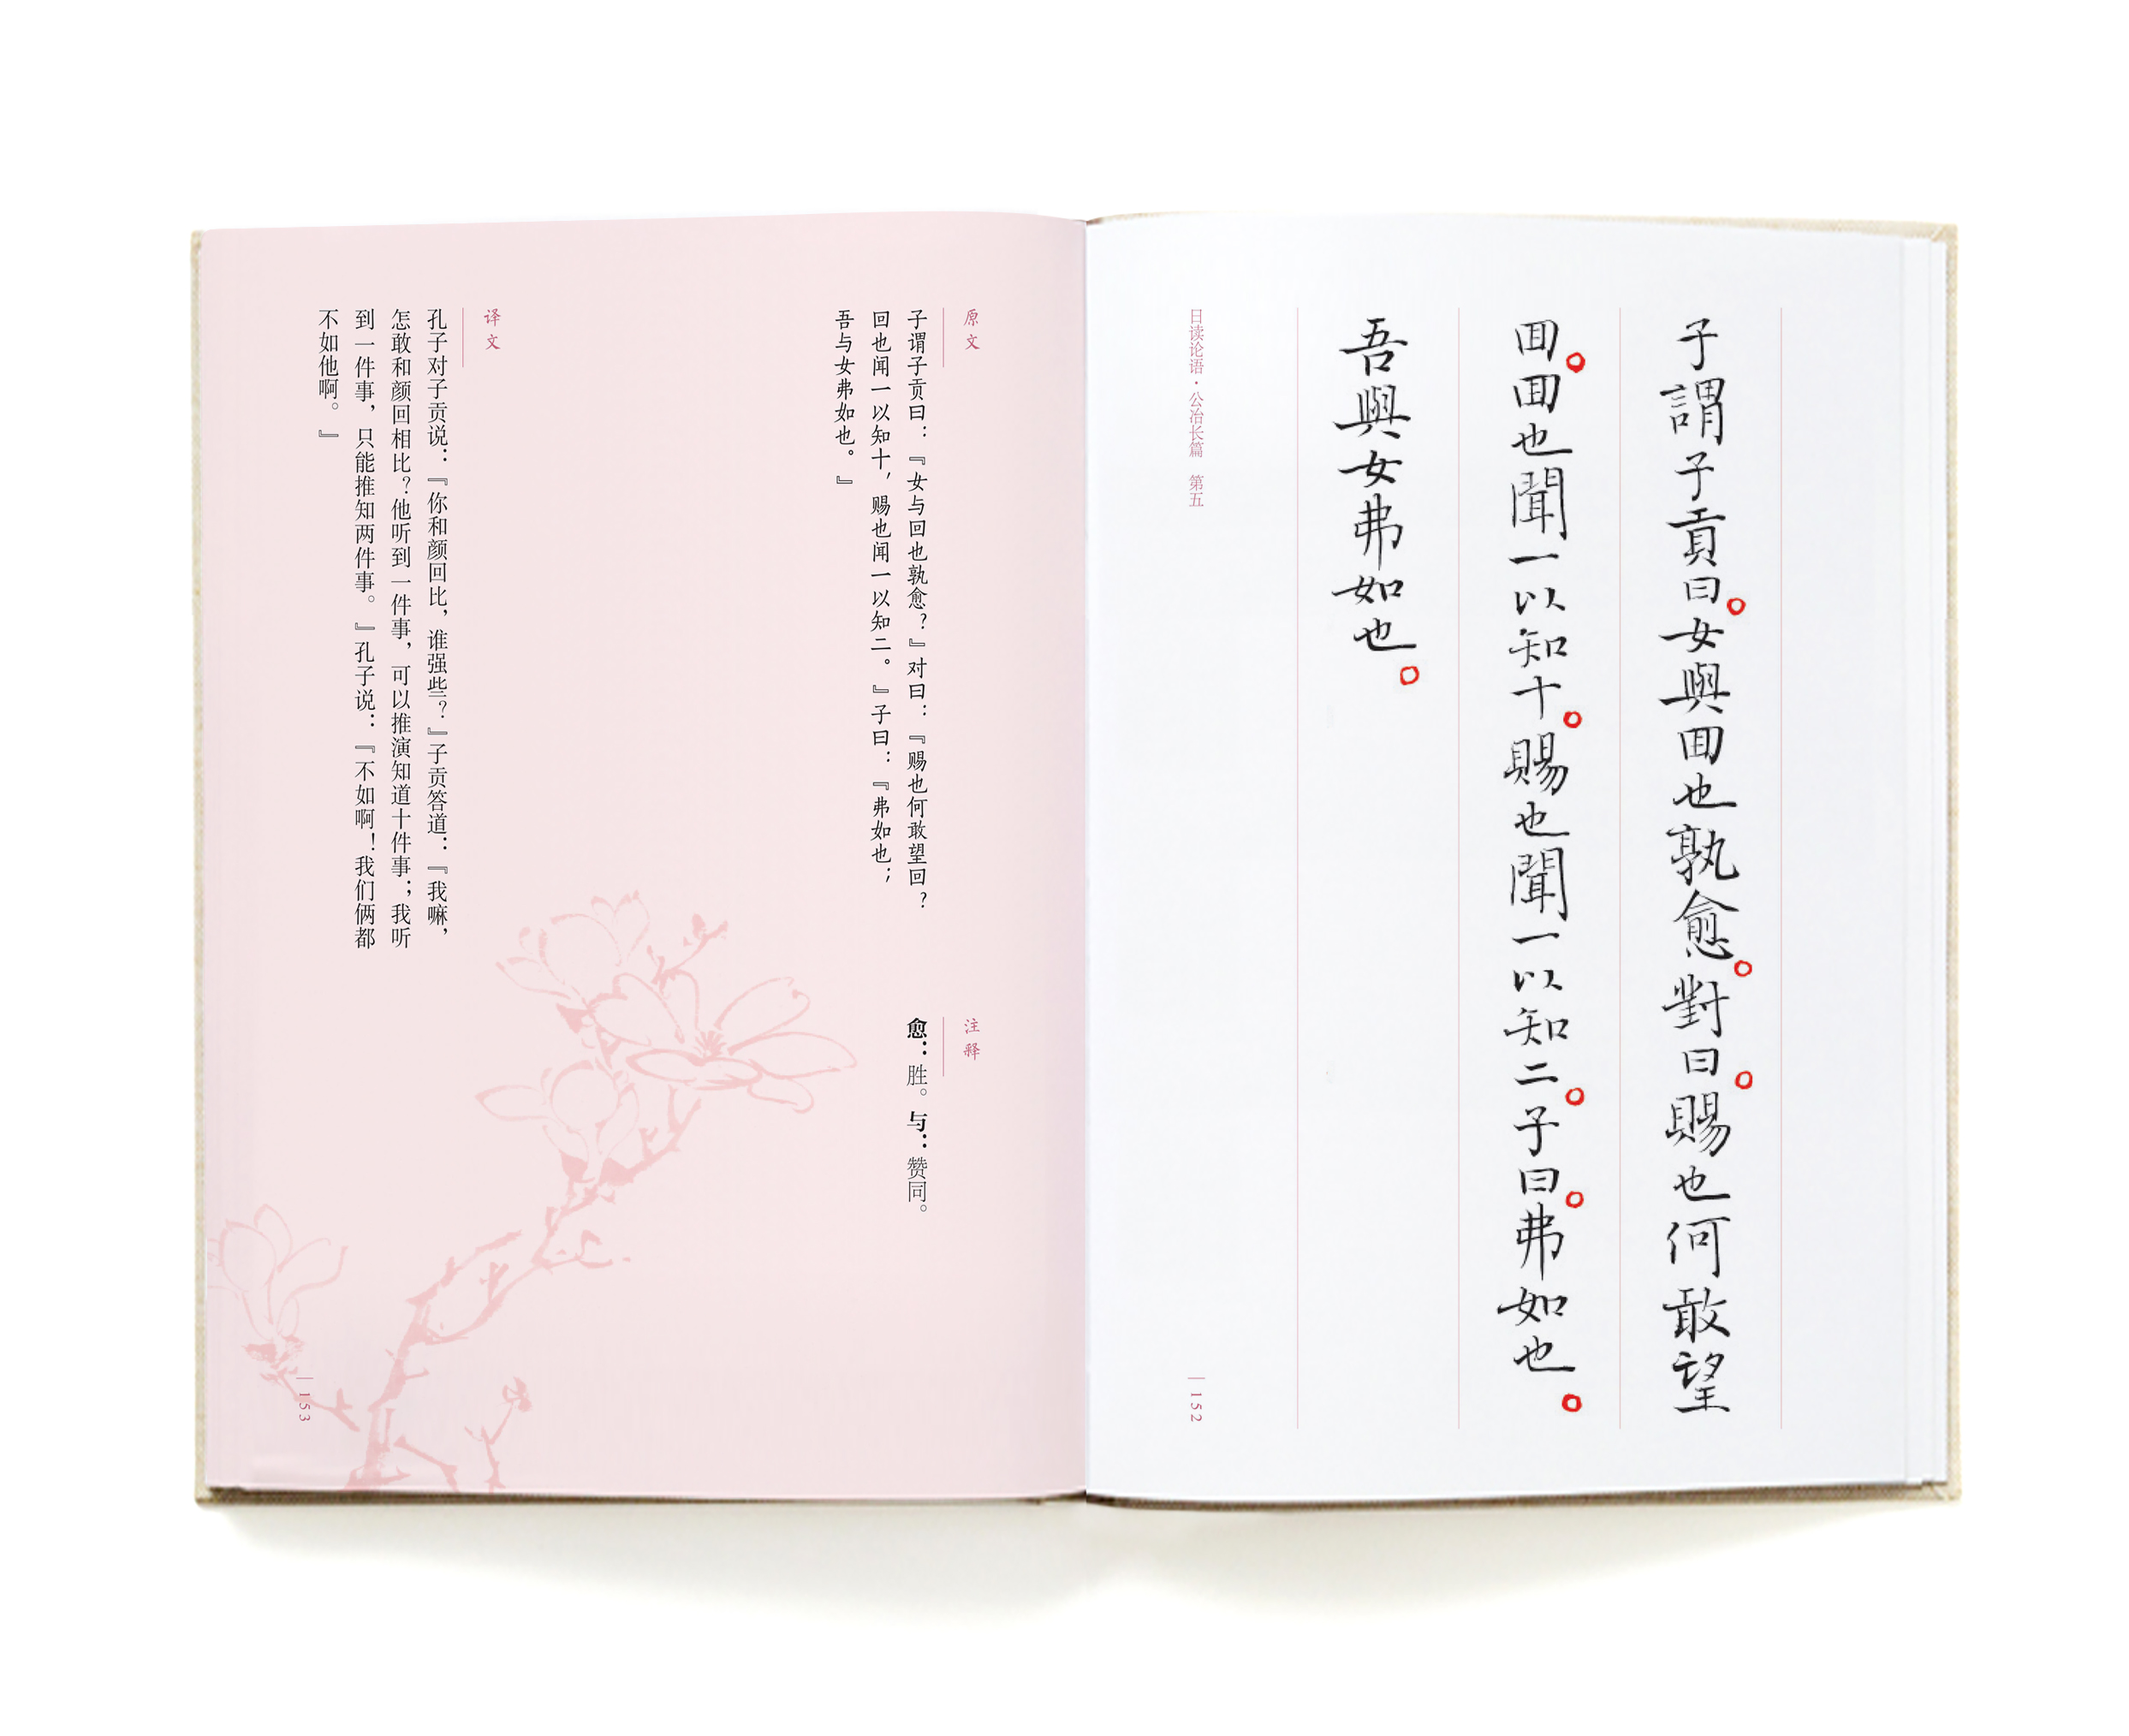 子謂子貢曰。女與囬也孰愈。對曰。賜也何敢望
囬。囬也聞一以知十。賜也聞一以知二。子曰。弗如也。
吾與女弗如也。
日读论语·公冶长篇 第五
152
原文
子谓子贡曰：『女与回也孰愈？』对曰：『赐也何敢望回？
回也闻一以知十，赐也闻一以知二。』子曰：『弗如也；
吾与女弗如也。』
注释
愈：胜。与：赞同。
译文
孔子对子贡说：『你和颜回比，谁强些？』子贡答道：『我嘛，
怎敢和颜回相比？他听到一件事，可以推演知道十件事；我听
到一件事，只能推知两件事。』孔子说：『不如啊！我们俩都
不如他啊。』
153